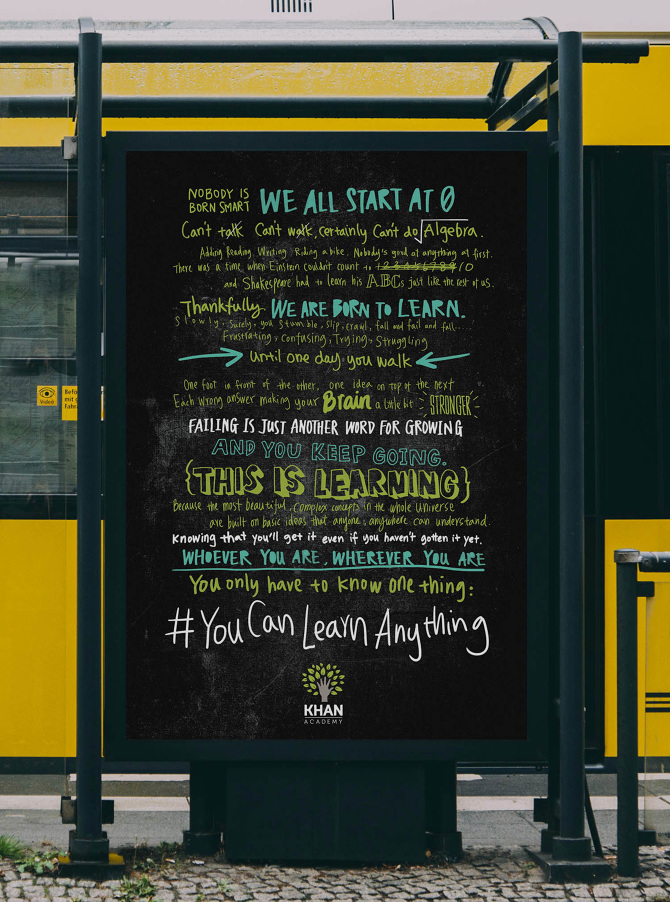 NOBODY IS
BORN SMART
WE ALL START AT 0
Can't talk Can't walk, certainly Can't do Algebra.
Adding Reading. Writing. Riding a bike. Nobody's good at anything at first.
There was a time when Einstein couldn't count to 12345678910
and Shakespeare had to learn his ABCs just like the rest of us.
Thankfully. WE ARE BORN TO LEARN.
Slowly, Surely, you stumble, slip, crawl, fall and fail and fall....
Frustrating, Confusing, Trying, Struggling
until one day you walk
One foot in front of the other, one idea on top of the next
Each wrong answer making your Brain a little bit STRONGER
FAILING IS JUST ANOTHER WORD FOR GROWING
AND YOU KEEP GOING.
{THIS IS LEARNING}
Because the most beautiful, complex concepts in the whole universe
are built on basic ideas that anyone, anywhere can understand.
Knowing that you'll get it even if you haven't gotten it yet.
WHOEVER YOU ARE, WHEREVER YOU ARE
You only have to know one thing:
#YouCanLearnAnything
KHAN
ACADEMY
Video